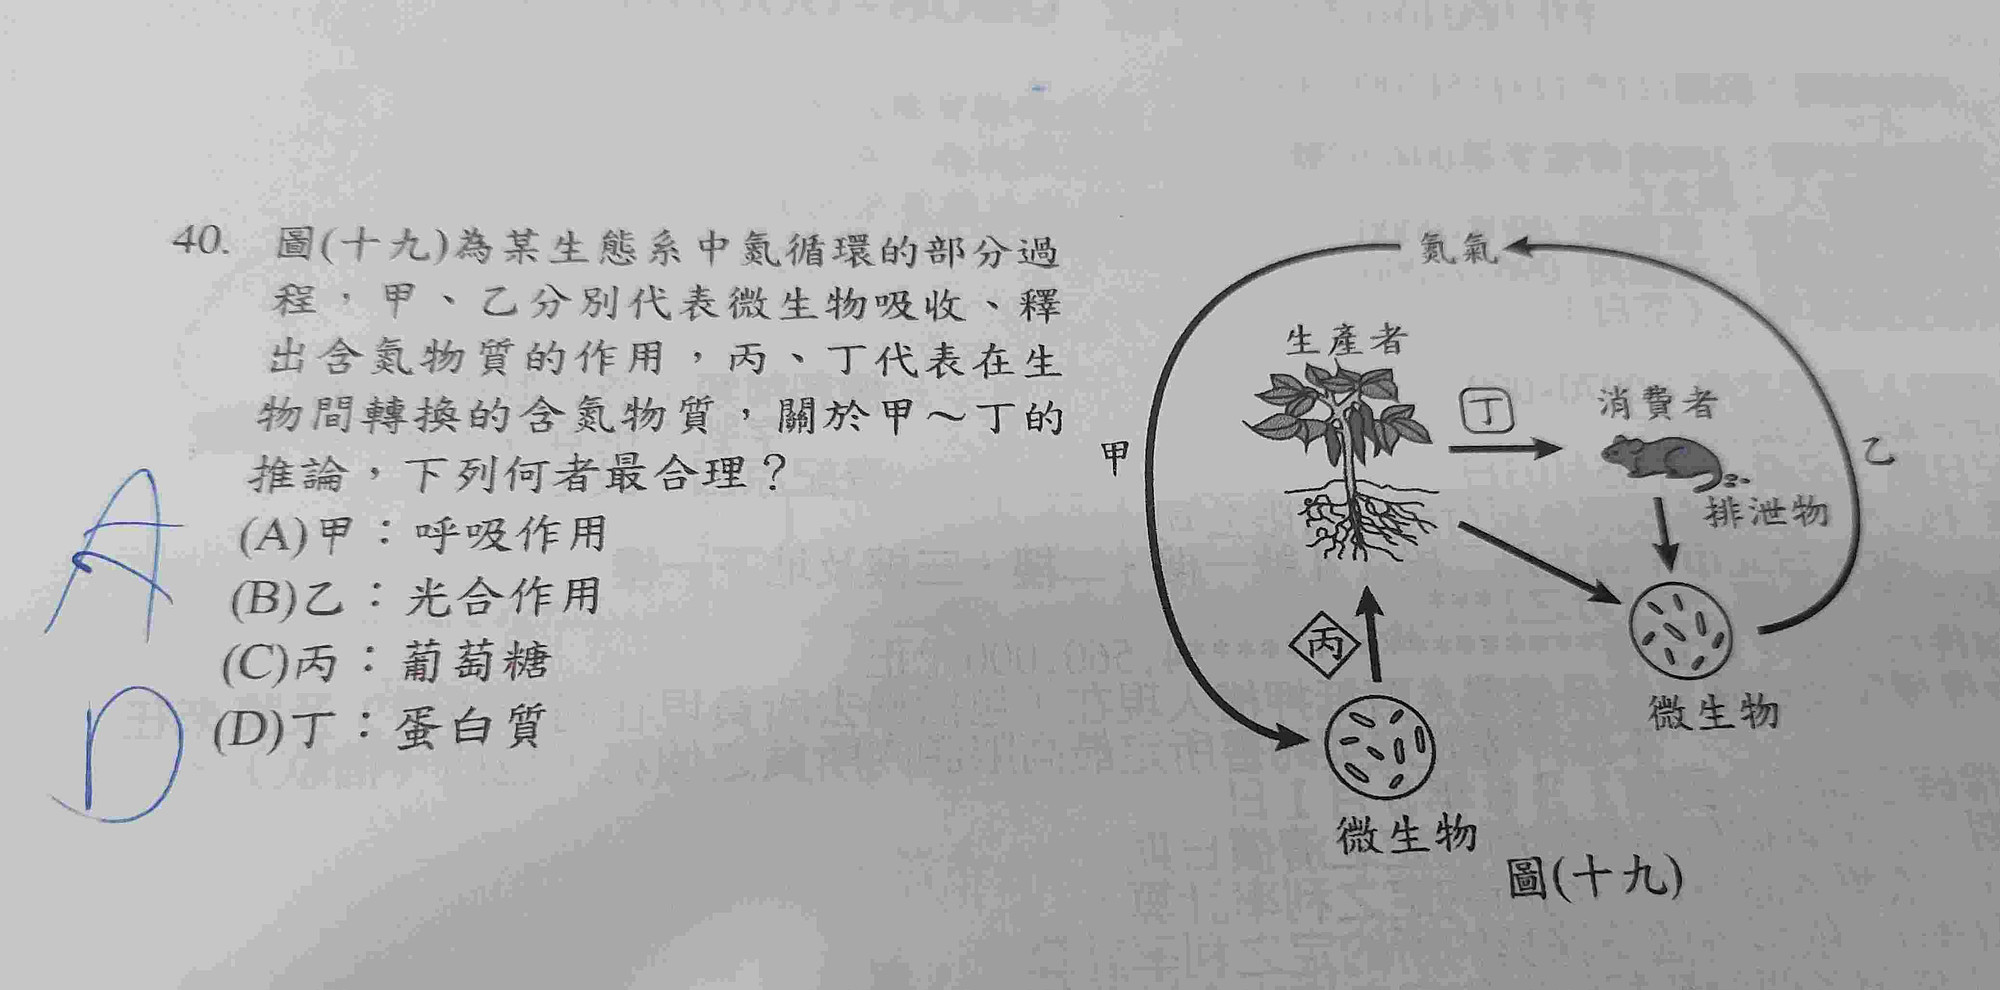 40. 圖(十九)為某生態系中氮循環的部分過
程，甲、乙分別代表微生物吸收、釋
出含氮物質的作用，丙、丁代表在生
物間轉換的含氮物質，關於甲～丁的
推論，下列何者最合理？
(A)甲：呼吸作用
(B)乙：光合作用
(C)丙：葡萄糖
(D)丁：蛋白質
A
D
氮氣
生產者
丁
消費者
甲
乙
排泄物
丙
微生物
微生物
圖(十九)